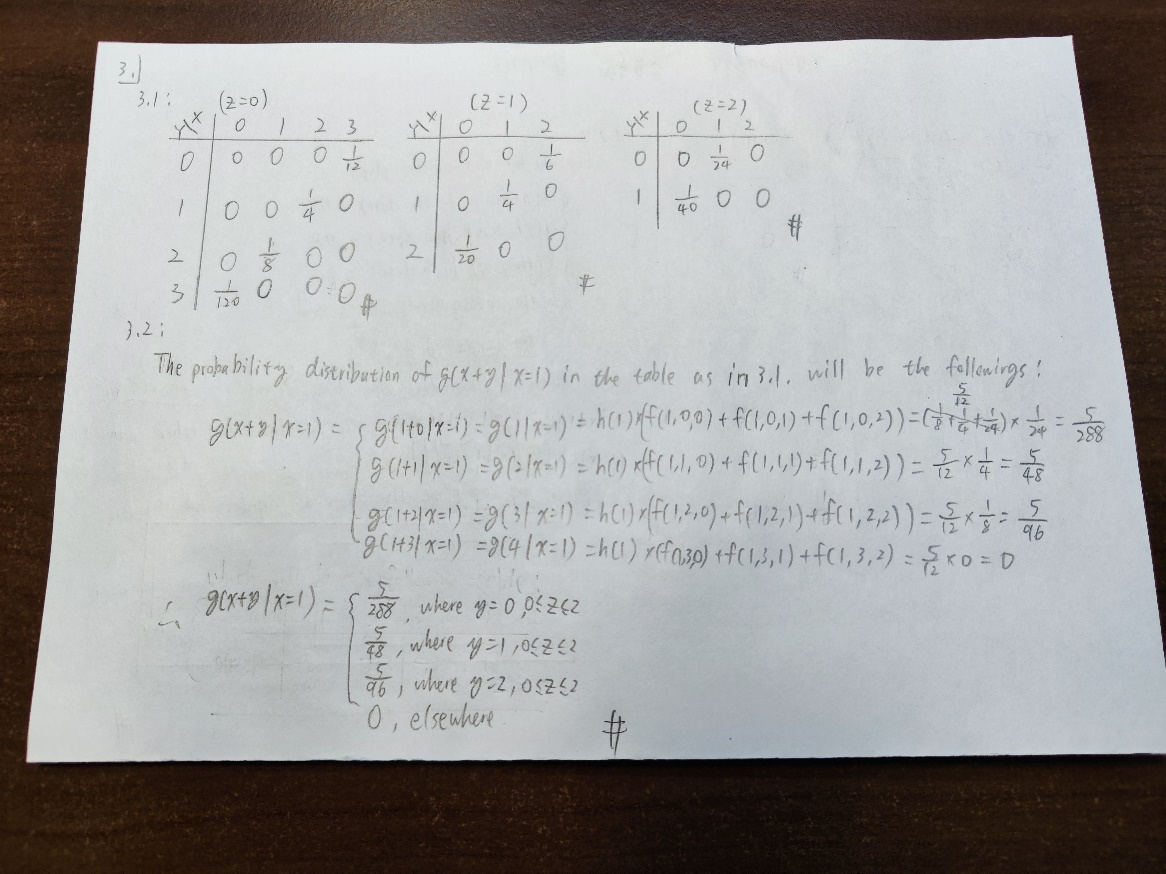 3.
3.1:
(z=0) (z=1) (z=2)
y\x 0 1 2 3 y\x 0 1 2 y\x 0 1 2
0 0 0 0 1/12 0 0 0 1/6 0 0 1/24 0
1 0 0 1/4 0 1 0 1/4 0 1 1/40 0 0 #
2 0 1/8 0 0 2 1/20 0 0 #
3 1/120 0 0 0 #
3.2:
The probability distribution of g(x+y|x=1) in the table as in 3.1. will be the followings:
g(x+y|x=1) = { g(1+0|x=1) = g(1|x=1) = h(1)×(f(1,0,0)+f(1,0,1)+f(1,0,2)) = (1/8+1/4+1/24) 5/12 × 1/24 = 5/288
g(1+1|x=1) = g(2|x=1) = h(1)×(f(1,1,0)+f(1,1,1)+f(1,1,2)) = 5/12 × 1/4 = 5/48
g(1+2|x=1) = g(3|x=1) = h(1)×(f(1,2,0)+f(1,2,1)+f(1,2,2)) = 5/12 × 1/8 = 5/96
g(1+3|x=1) = g(4|x=1) = h(1)×(f(1,3,0)+f(1,3,1)+f(1,3,2) = 5/12 × 0 = 0
∴ g(x+y|x=1) = { 5/288, where y=0, 0≤z≤2
5/48, where y=1, 0≤z≤2
5/96, where y=2, 0≤z≤2
0, elsewhere #